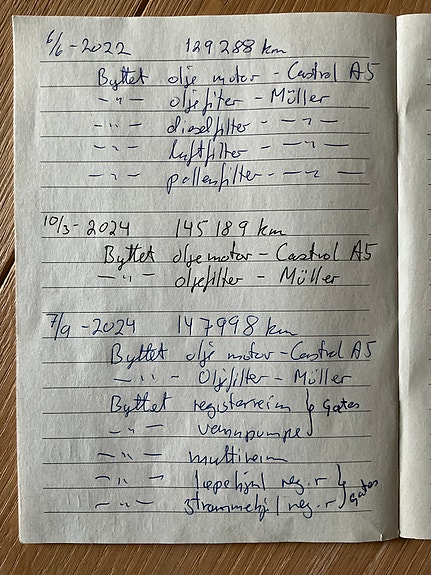 6/6 - 2022 129288 km
Byttet olje motor - Castrol A5
- " - oljefilter - Müller
- " - dieselfilter - " -
- " - luftfilter - " -
- " - pollenfilter - " -
10/3 - 2024 145189 km
Byttet olje motor - Castrol A5
- " - oljefilter - Müller
7/9 - 2024 147998 km
Byttet olje motor - Castrol A5
- " - Oljefilter - Müller
Byttet registerreim } Gates
- " - vannpumpe
- " - multireim
- " - løpehjul reg.r } Gates
- " - strammehjul reg.r